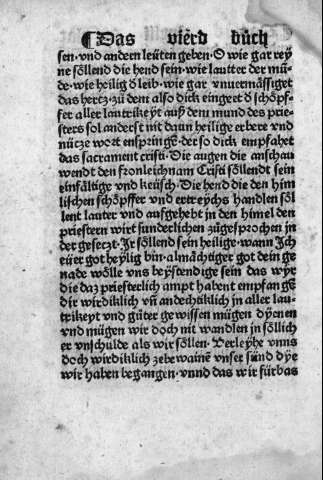 ¶Das vierd bůch
sen·vnd andern leüten geben·O wie gar rey
ne söllend die hend sein·wie lautter der mü/
de·wie heilig ď leib·wie gar vnuermässiget
das hertz·zů dem also dick eingeet ď schöpf/
fer aller lautrikeyt auß dem mund des prie/
sters sol anderst nit dann heilige erbere vnd
nücze wort enspringẽ·der so dick empfahet
das sacrament cristi·Die augen die anschau
wendt den fronleichnam Cristi söllendt sein
einfältige vnd keüsch·Die hend die den him
lischen schöpffer vnd ertreychs handlen söl
lent lauter vnd aufgehebt in den himel den
priestern wirt sunderlichen zůgesprochen in
der gesetzt·Ir söllend sein heilige·wann Ich
eüwer got heylig bin·almächtiger got dein ge
nade wölle vns beystendige sein das wyr
die daz priesterlich ampt habent empfangẽ
dir wirdiklich vñ andechtiklich in aller lau/
trikeyt vnd gůter gewissen mügen dyenen
vnd mügen wir doch nit wandlen in söllich
er vnschulde als wir söllen·Verleyhe vnns
doch wirdiklich zebewainẽ vnser sünd dye
wir haben begangen·vnnd das wir fürbas